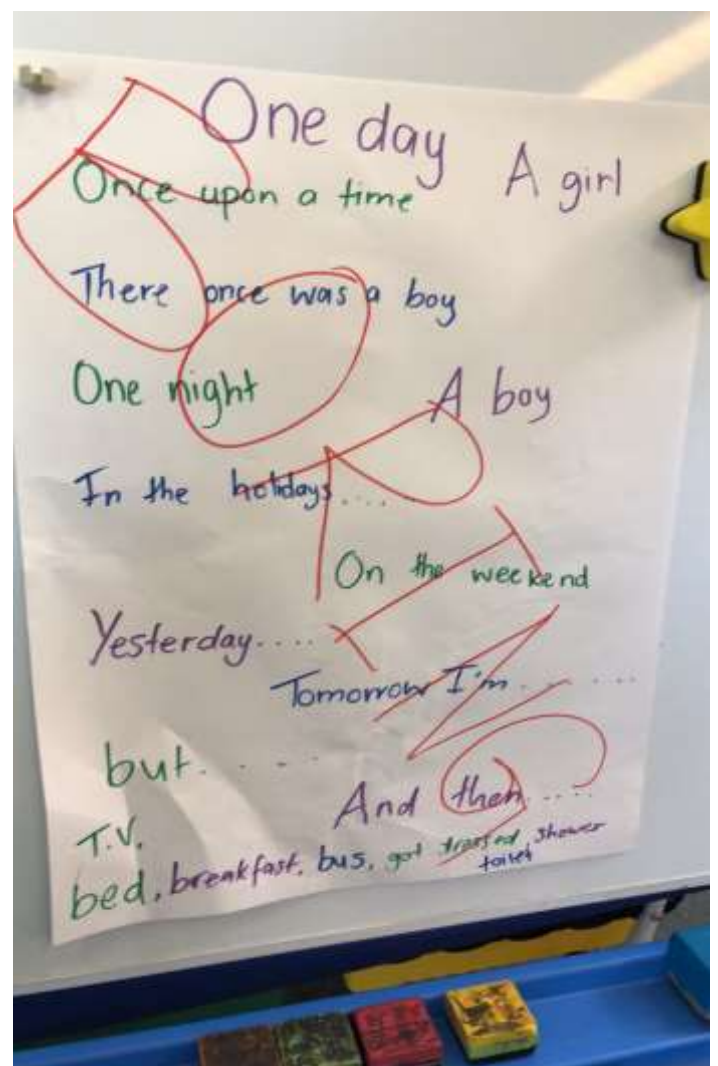 One day
A girl
Once upon a time
There once was a boy
One night
A boy
In the holidays.....
On the weekend
Yesterday.....
Tomorrow I'm.......
but.....
And then.....
T.V.
bed, breakfast, bus, got dressed shower
toilet
BORING